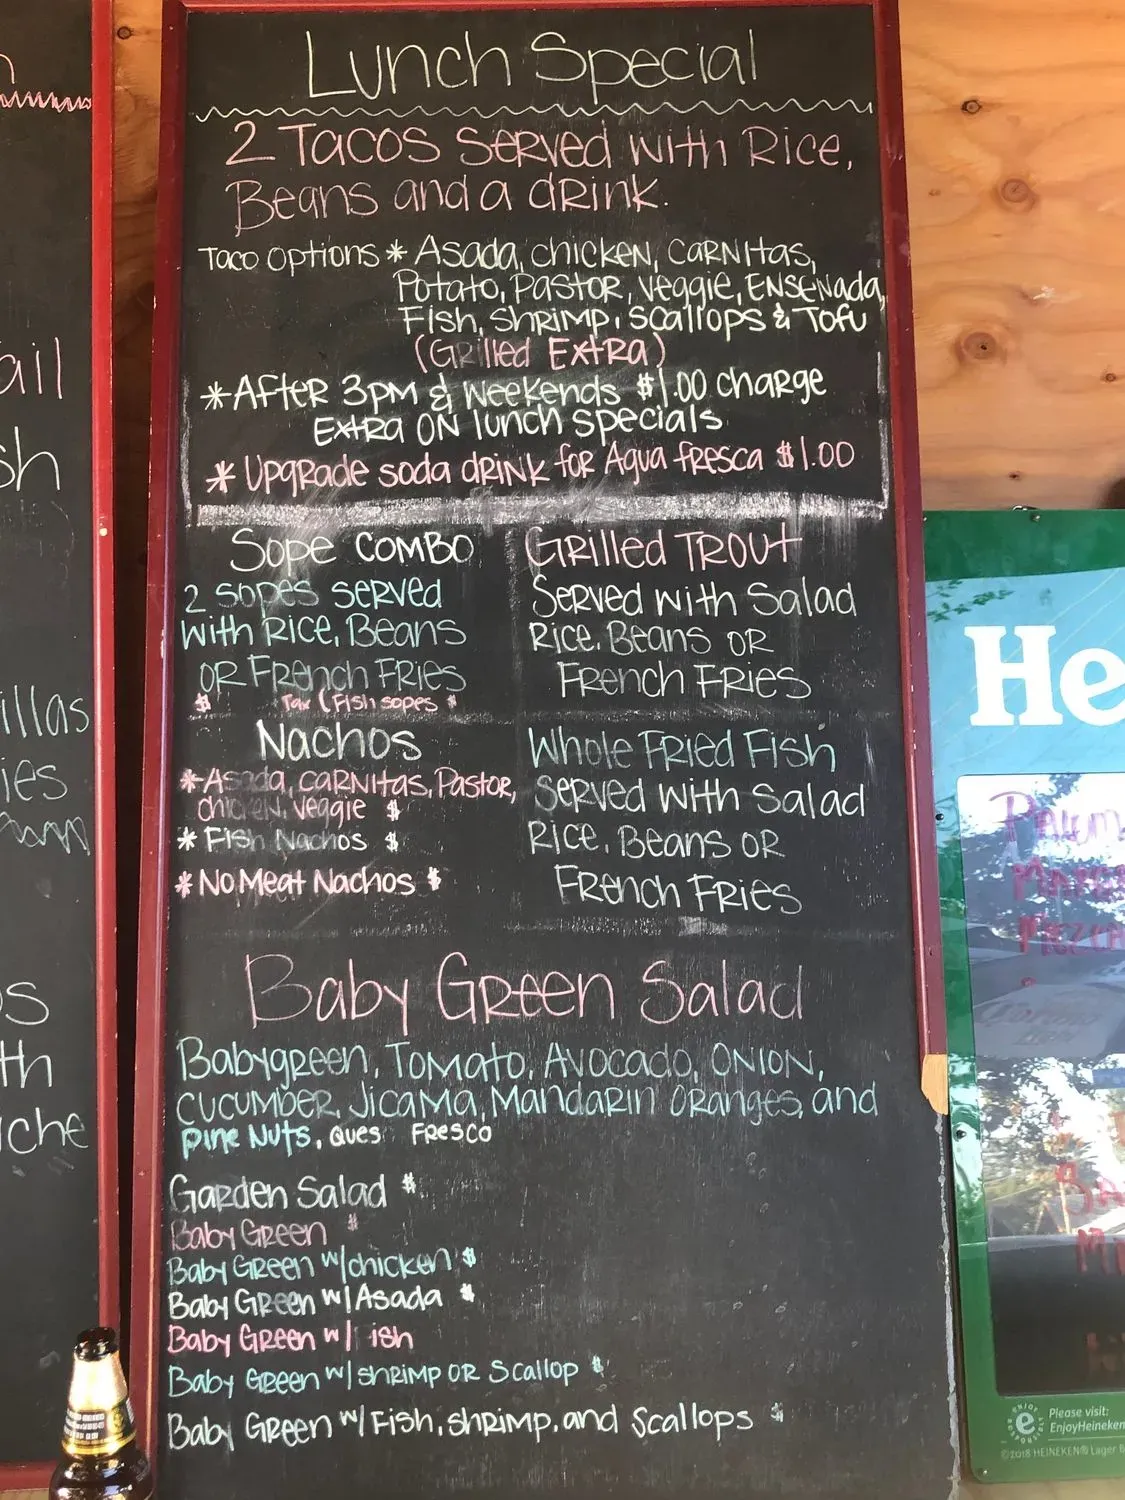 Lunch Special
2 Tacos served with Rice,
Beans and a drink.
Taco Options * Asada, chicken, carnitas,
Potato, Pastor, Veggie, Ensenada,
Fish, Shrimp, Scallops & Tofu
(Grilled Extra)
* After 3pm & Weekends $1.00 charge
Extra on lunch specials
* Upgrade soda drink for Agua fresca $1.00
Sope Combo
2 sopes served
with Rice, Beans
or French Fries
$ Tax (Fish sopes $
Grilled Trout
Served with Salad
Rice, Beans or
French Fries
Nachos
* Asada, carnitas, Pastor,
chicken, veggie $
* Fish Nachos $
* No Meat Nachos $
Whole Fried Fish
Served with Salad
Rice, Beans or
French Fries
Baby Green Salad
Babygreen, Tomato, Avocado, Onion,
cucumber, Jicama, Mandarin oranges, and
pine nuts, Ques Fresco
Garden Salad $
Baby Green $
Baby Green w/chicken $
Baby Green w/Asada $
Baby Green w/ ish
Baby Green w/shrimp or Scallop $
Baby Green w/Fish, shrimp, and Scallops $
ail
sh
illas
ies
os
th
iche
He
Please visit:
EnjoyHeineken
©2018 HEINEKEN® Lager B